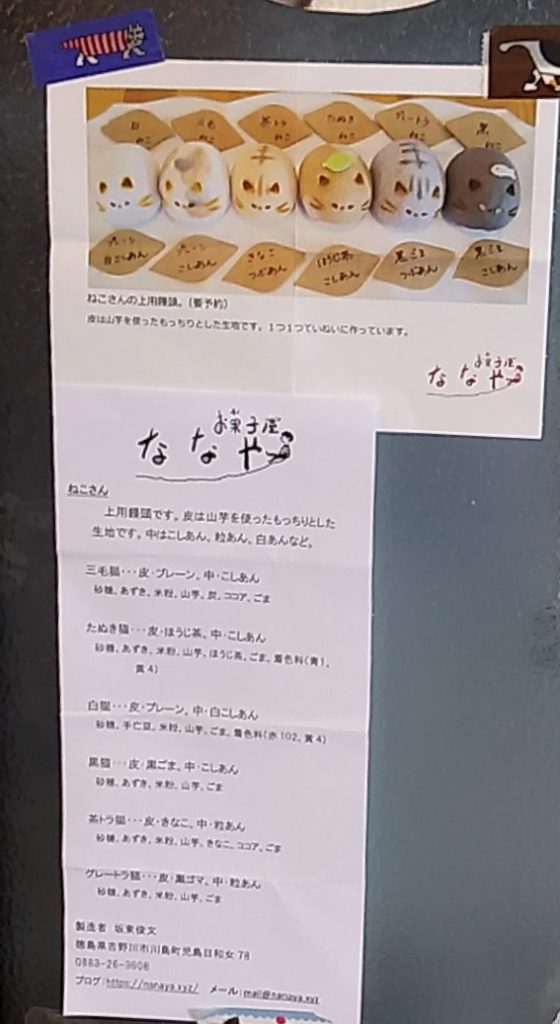 白
ねこ
三毛
ねこ
茶トラ
ねこ
たぬき
ねこ
グレートラ
ねこ
黒
ねこ
プレーン
白こしあん
プレーン
こしあん
きなこ
つぶあん
ほうじ茶
こしあん
黒ごま
つぶあん
黒ごま
こしあん
ねこさんの上用饅頭。(要予約)
皮は山芋を使ったもっちりとした生地です。1つ1つていねいに作っています。
お菓子屋
ななや
お菓子屋
ななや
ねこさん
上用饅頭です。皮は山芋を使ったもっちりとした
生地です。中はこしあん、粒あん、白あんなど。
三毛猫・・・皮・プレーン、中・こしあん
砂糖、あずき、米粉、山芋、炭、ココア、ごま
たぬき猫・・・皮・ほうじ茶、中・こしあん
砂糖、あずき、米粉、山芋、ほうじ茶、ごま、着色料(青1、
黄4)
白猫・・・皮・プレーン、中・白こしあん
砂糖、手亡豆、米粉、山芋、ごま、着色料(赤102、黄4)
黒猫・・・皮・黒ごま、中・こしあん
砂糖、あずき、米粉、山芋、ごま
茶トラ猫・・・皮・きなこ、中・粒あん
砂糖、あずき、米粉、山芋、きなこ、ココア、ごま
グレートラ猫・・・皮・黒ゴマ、中・粒あん
砂糖、あずき、米粉、山芋、ごま
製造者 坂東俊文
徳島県吉野川市川島町児島日和女78
0883-26-3608
ブログ:https://nanaya.xyz/ メール:mail@nanaya.xyz